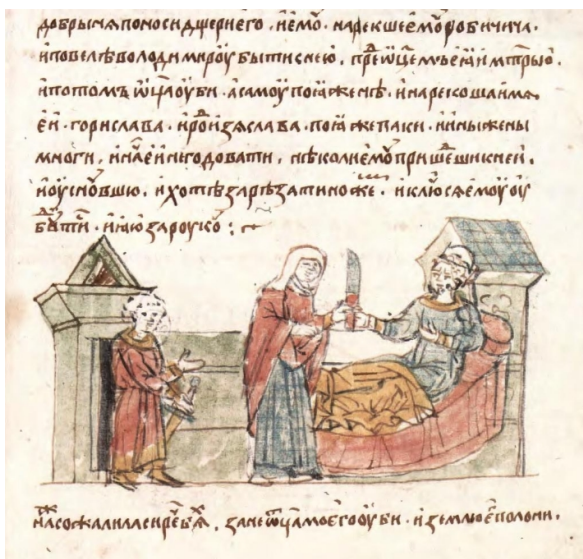 добрыняпоносидщериего. иемꙋ. нарекшеемꙋробичича.
иповелѣволодимироубытиснею. преⷣѿцемъеяимт҃рью.
ипотомъ ѿц҃аоуби. асамоупояженѣ. инарекошаимя
еи. горислава. ироⷣиизяслава. пояжепаки. иныжены
многи. инаⷱеинегодовати. нѣколиемꙋпришеⷣшикнеи.
иоуснꙋвшю. ихотѣзарѣзатиноже. иклюⷱсяемоуоу
бꙋⷣтиⷭ. ияюзароукꙋ :~
сожалиласиреⷱбѧⷯ, занеѿц҃амоегооуби. иземлюеⷢполони.